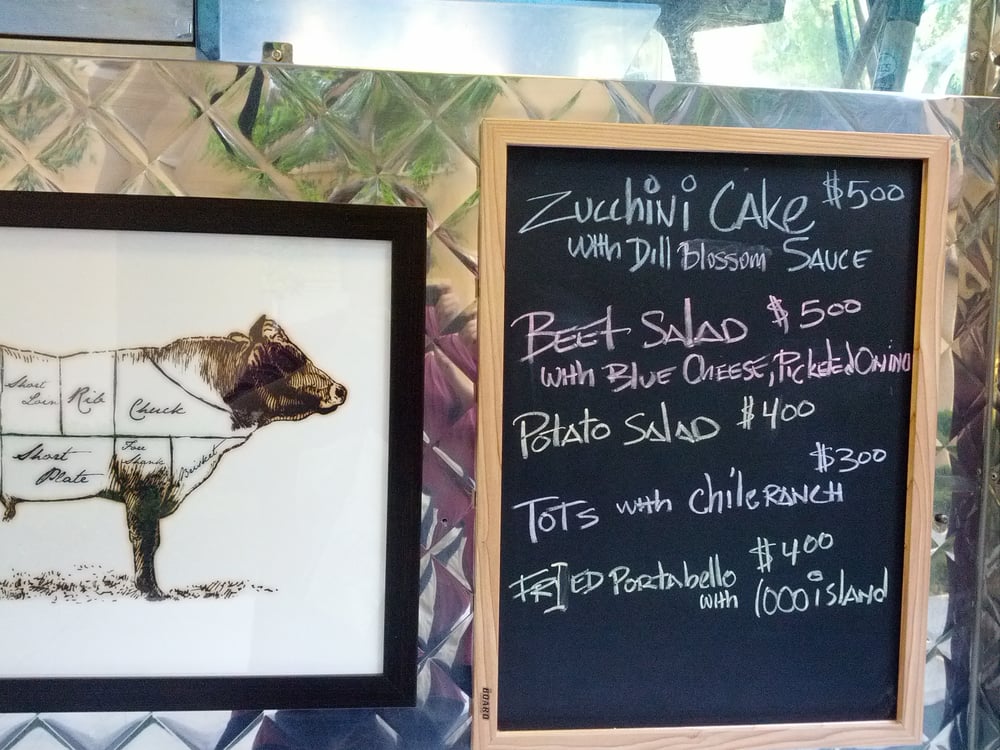 Short
Loin
Rib
Chuck
Short
Plate
Fore
Shank
Brisket
Zucchini Cake $500
with Dill Blossom Sauce
Beet Salad $500
with Blue Cheese, Pickeled Onino
Potato Salad $400
$300
Tots with chile Ranch
$400
FRIED Portabello
with 1000 island
BOARD